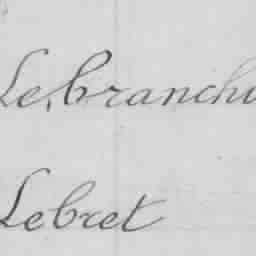 Lebranchu
Lebret